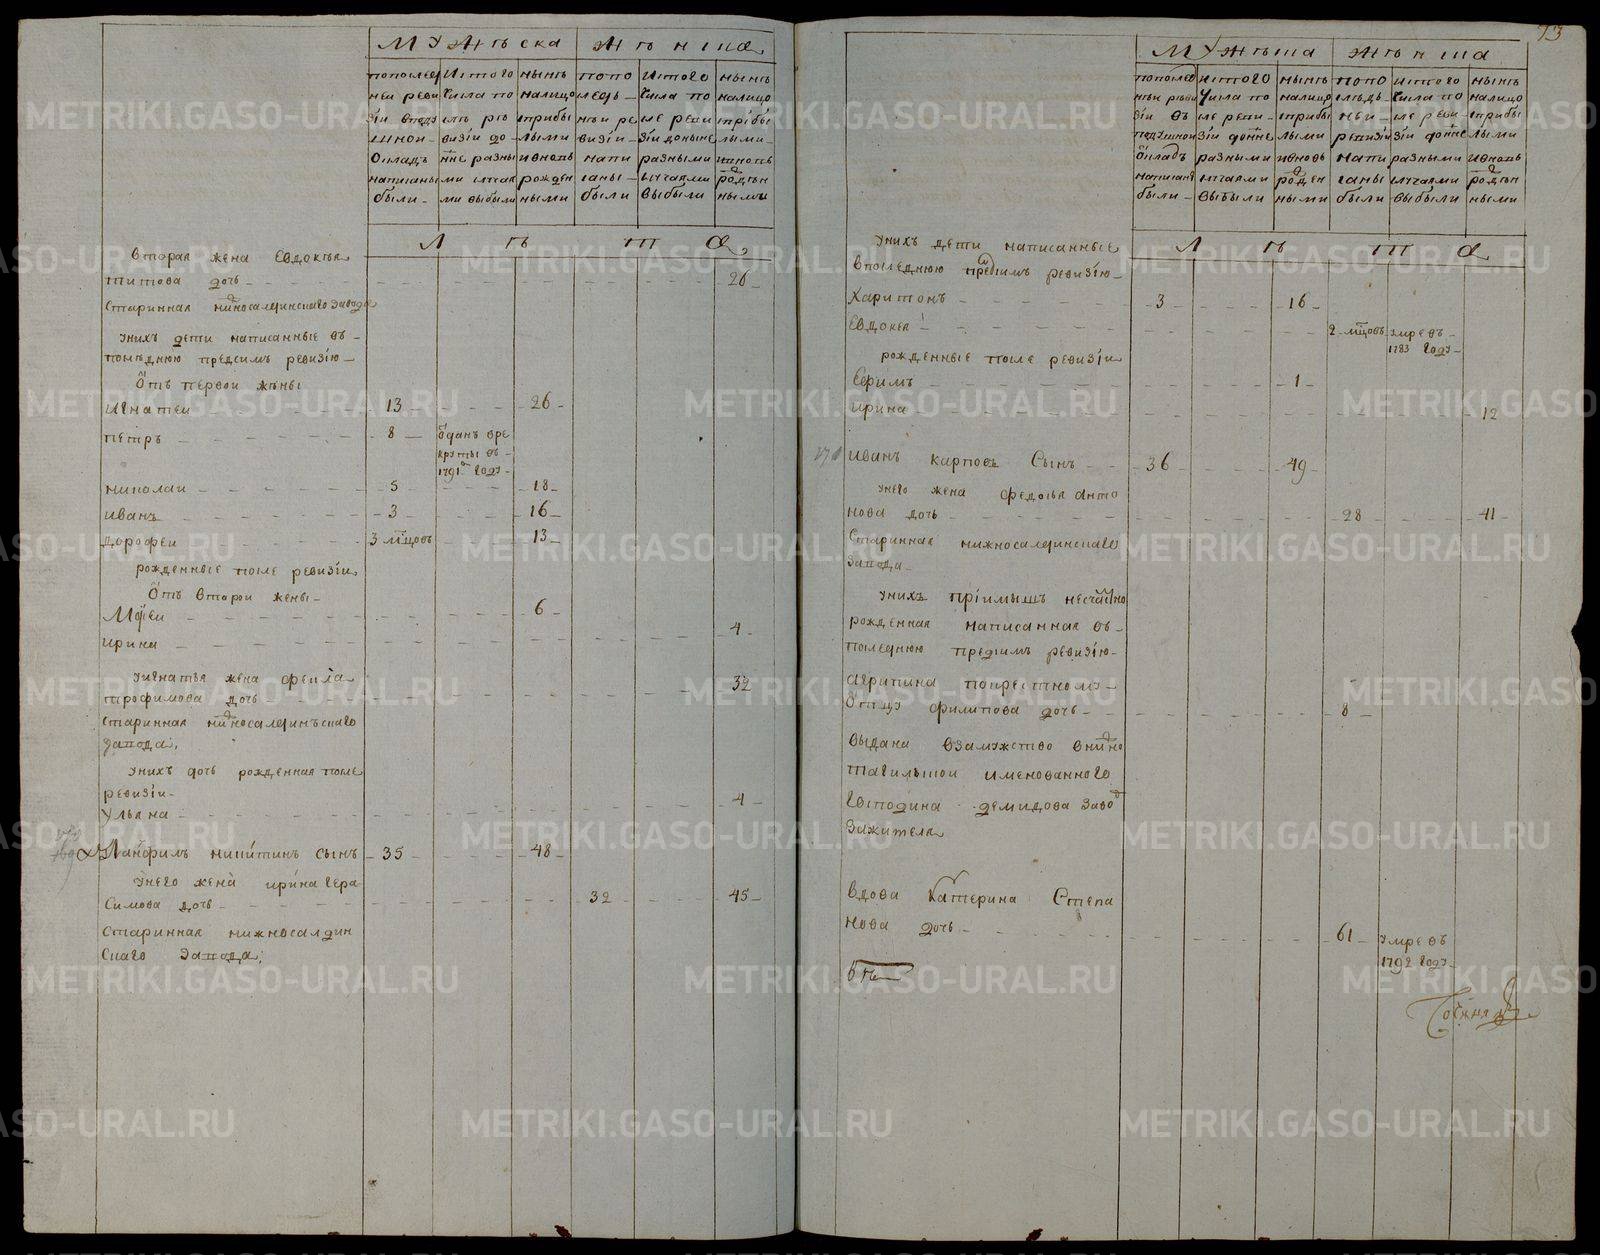 Мужеска Женска
по последней ревизии в подушной оклад написаны были
из того числа после ревизии до ныне разными случаями выбыли
ныне на лицо с прибылыми и вновь рожденными
по последней ревизии написаны были
из того числа после ревизии доныне разными случаями выбыли
ныне на лицо с прибылыми и вновь рожденными
Л ѣ т а
Вторая жена Евдокѣя
Титова дочь 26
Старинная нижносалдинскаго завода
У нихъ дети написанные въ
последнюю предсимъ ревизїю
Отъ первой жены
Игнатей 13 26
Петръ 8 Отданъ в рекруты въ 1791м году
Николай 5 18
Иванъ 3 16
Дорофей 3 мцовъ 13
рожденные после ревизїи
Отъ второй жены
Мофей 6
Ирина 4
У Игнатья жена Феκла
Трофимова дочь 32
Старинная нижносалдинъскаго
завода.
У нихъ дочь рожденная после
ревизїи
Ульяна 4
Панфилъ Никитинъ сынъ 35 48
У него жена Ирина Гера
симова дочь 32 45
Старинная нижносалдин
скаго завода;
73
Мужеска Женска
по последней ревизии въ подушной оклад написаны были
из того числа после ревизїи доныне разными случаями выбыли
ныне налицо с прибылыми и вновь рожденными
по последней ревизїи написаны были
из того числа после ревизїи доныне разными случаями выбыли
ныне налицо с прибылыми и вновь рожденными
Л ѣ т а
У нихъ дети написанные
в последнюю предсимъ ревизїю
Харитонъ 3 16
Евдокея 2 мцовъ умре въ 1783 году
рожденные после ревизїи
Ефимъ 1
Ирина 12
270 Иванъ Карповъ Сынъ 36 49
У него жена Федосья Анто
нова дочь 28 41
Старинная нижносалдинскаго
Завода
У нихъ прїимышъ несчастно
рожденная написанная въ
последнюю предсимъ ревизїю
Агрипина по крестному
Отцу Филипова дочь 8
выдана взамужство в нижно
тагильской именованного
Господина Демидова завод
За жителя
Вдова Катерина Степа
нова дочь 61 умре въ 1792 году
METRIKI.GASO-URAL.RU